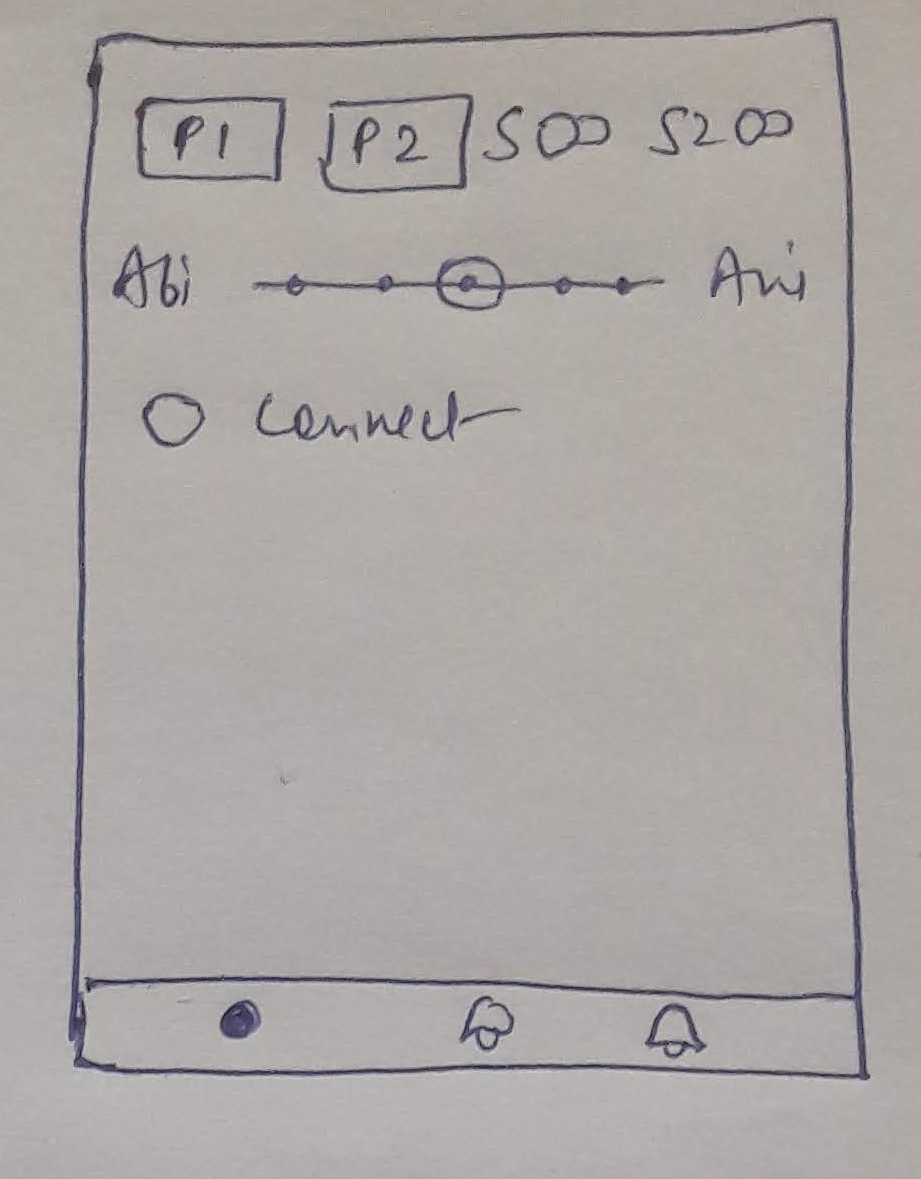 P1 P2 500 5200
Abi Avi
Connect